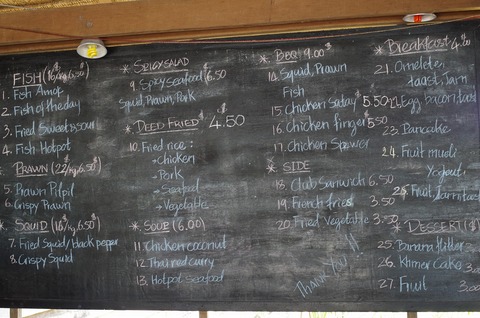 FISH (16/kg, 6.50$)
1. Fish Amok
2. Fish of the day
3. Fried Sweet & sour
4. Fish Hotpot
PRAWN (22/kg, 6.50$)
5. Prawn Pilpil
6. Crispy Prawn
* SQUID (18/kg, 6.50$)
7. Fried Squid/black pepper
8. Crispy Squid
* SPICY SALAD
9. Spicy Seafood 6.50$
Squid, Prawn, Pork
* DEED FRIED 4.50$
10. Fried rice:
→ Chicken
→ Pork
→ Seafood
→ Vegetable
* SOUP (6.00)
11. Chicken coconut
12. Thai red curry
13. Hotpot seafood
* BBQ 9.00$
14. Squid, Prawn
Fish
15 Chicken Satay 5.50
16. Chicken finger 5.50
17. Chicken Skewer
* SIDE
18. Club Sanwich 6.50
19. French fries 3.50
20. Fried Vegetable 3.50
THANK YOU!!
* Breakfast 4.00$
21. Omelete,
toast, Jam
22. Egg, bacon, toast
23. Pancake
24. Fruit musli
Yoghurt
25. Fruit, Jam, toast
* DESSERT ($)
25. Banana
26. Khmer Cake 3.00
27. Fruit 3.00